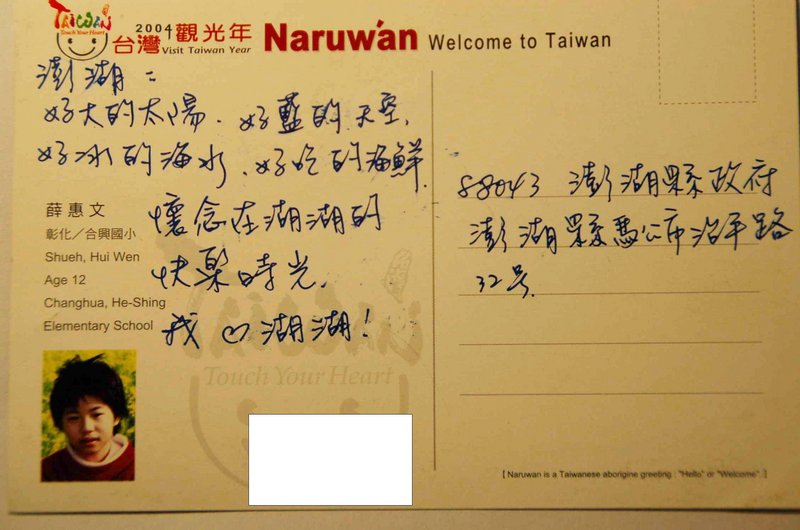 TAIWAN
Touch Your Heart
2004
台灣觀光年
Visit Taiwan Year
Naruwan Welcome to Taiwan
澎湖：
好大的太陽、好藍的天空,
好冰的海水、好吃的海鮮.
懷念在湖湖的
快樂時光.
我♡湖湖!
薛惠文
彰化／合興國小
Shueh, Hui Wen
Age 12
Changhua, He-Shing
Elementary School
88043 澎湖縣政府
澎湖縣馬公市治平路
32号.
TAIWAN
Touch Your Heart
[ Naruwan is a Taiwanese aborigine greeting : "Hello" or "Welcome". ]